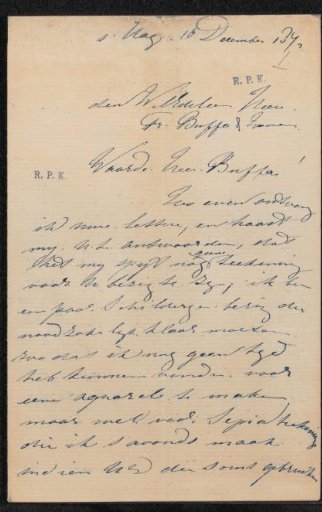 s'Hag. 16 December 187
R. P. K.
den WelEdelen Heer
Fr. Buffa & Zonen
R. P. K.
Waarde Heer Buffa!
Zoo even ontvang
ik uwe letteren, en haast
my U te antwoorden, dat
het my spyt nog geen teekening
voor U bezig te zyn; ik ben
een paar Schilderyen bezig die
noodzakelyk klaar moeten
zoo dat ik nog geen tyd
heb kunnen vinden voor
eene aquarel te maken
maar wel voor Sepia teekening
die ik s'avonds maak
indien U die soms gebruiken